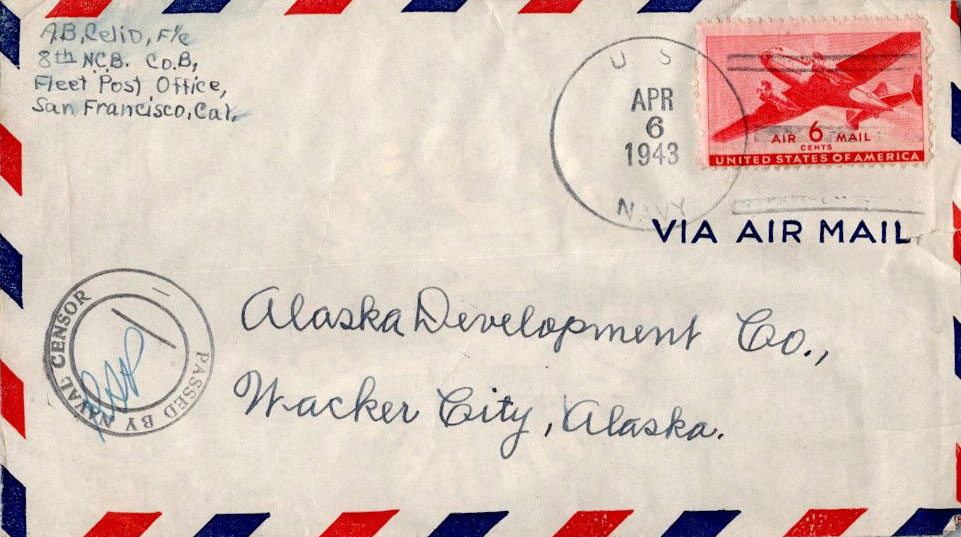 A.B. Celio, F1/c
8th N.C.B. Co.B,
Fleet Post Office,
San Francisco, Cal.
U S
APR
6
1943
NAVY
AIR 6 MAIL
CENTS
UNITED STATES OF AMERICA
VIA AIR MAIL
PASSED BY NAVAL CENSOR
Alaska Development Co.,
Wacker City, Alaska.